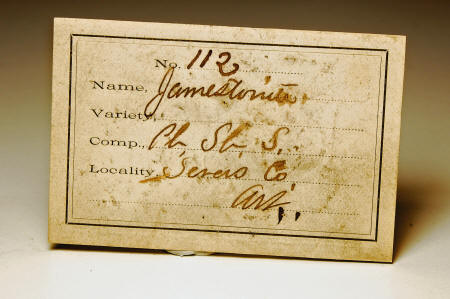 No. 112
Name, Jamestonite
Variety,
Comp., Pb, Sb, S.
Locality, Severs Co
Ark,